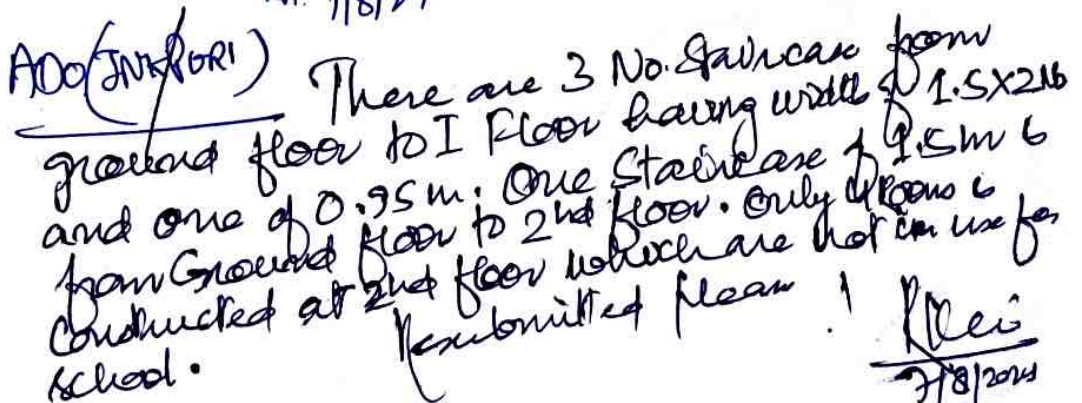 7/8/2
ADO(JNKPURI)
There are 3 No. Staircase from
ground floor to I Floor having width of 1.5X2 No
and one of 0.95m. One Staircase of 1.5m is
from Ground floor to 2nd floor. Only 4 Rooms is
Conducted at 2nd floor which are not in use for
school.
Resubmitted please !
7/8/2024